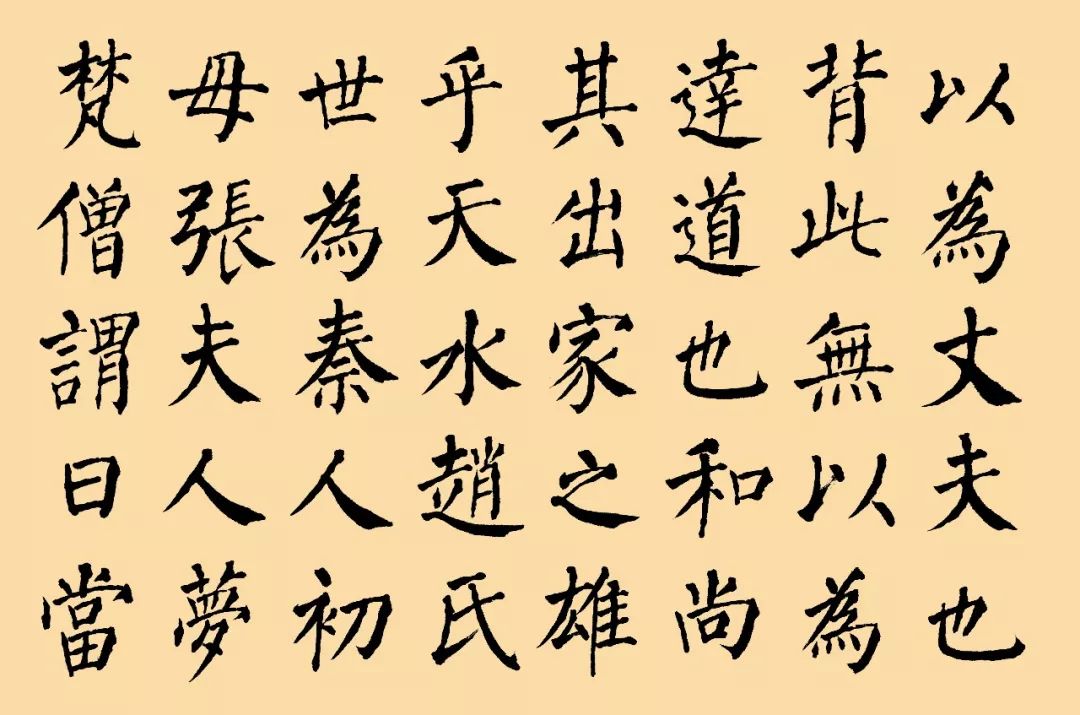 以為丈夫也
背此無以為
達道也和尚
其出家之雄
乎天水趙氏
世為秦人初
母張夫人夢
梵僧謂曰當